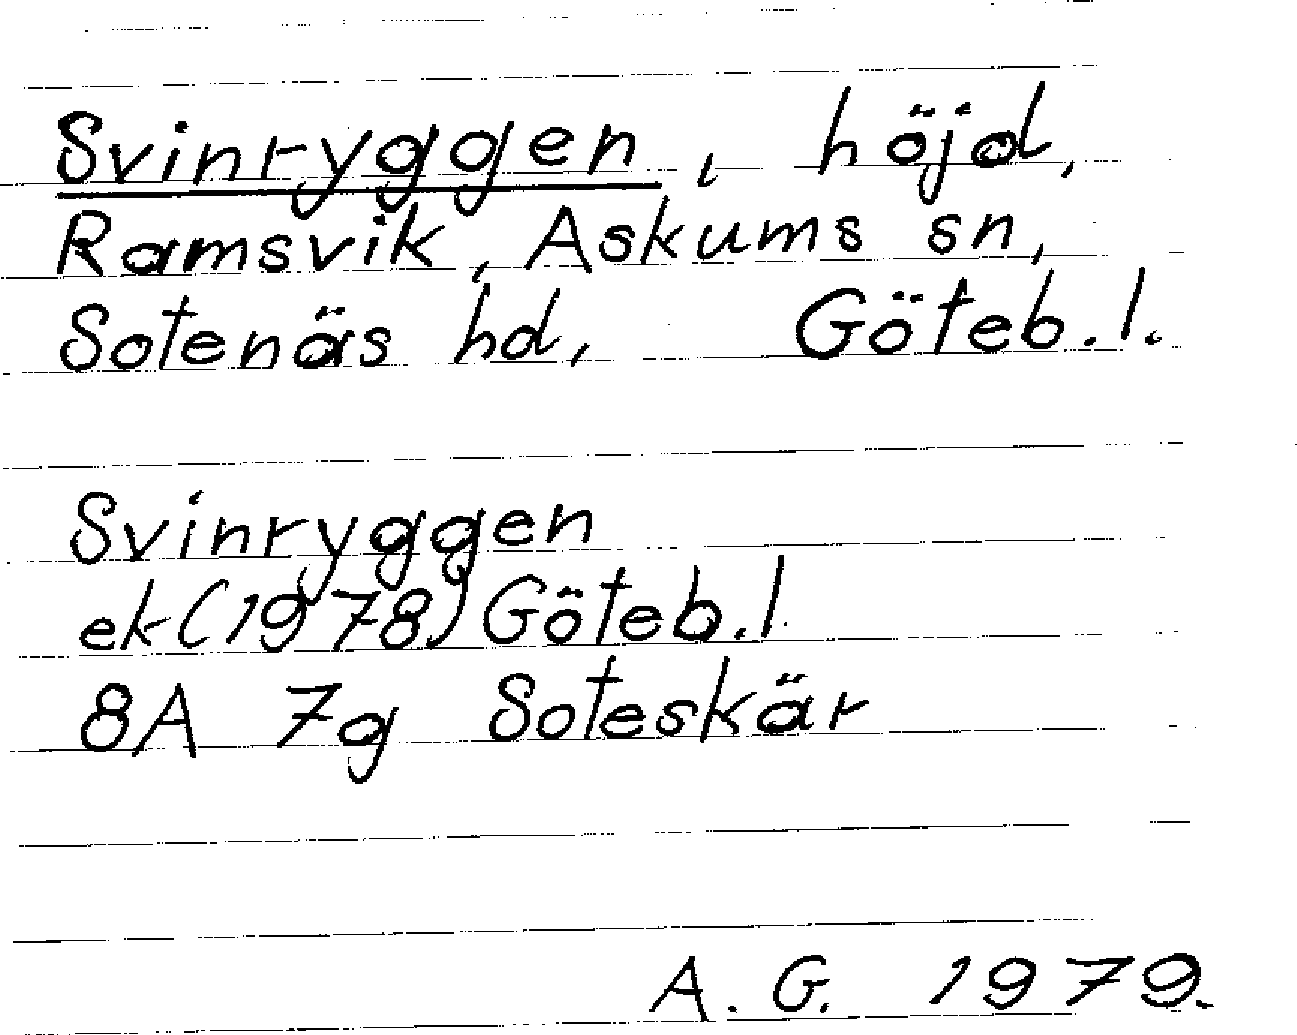 Svinryggen, höjd,
Ramsvik, Askums sn,
Sotenäs hd, Göteb. l.
Svinryggen
ek (1978) Göteb. l.
8A 7g Soteskär
A. G. 1979.